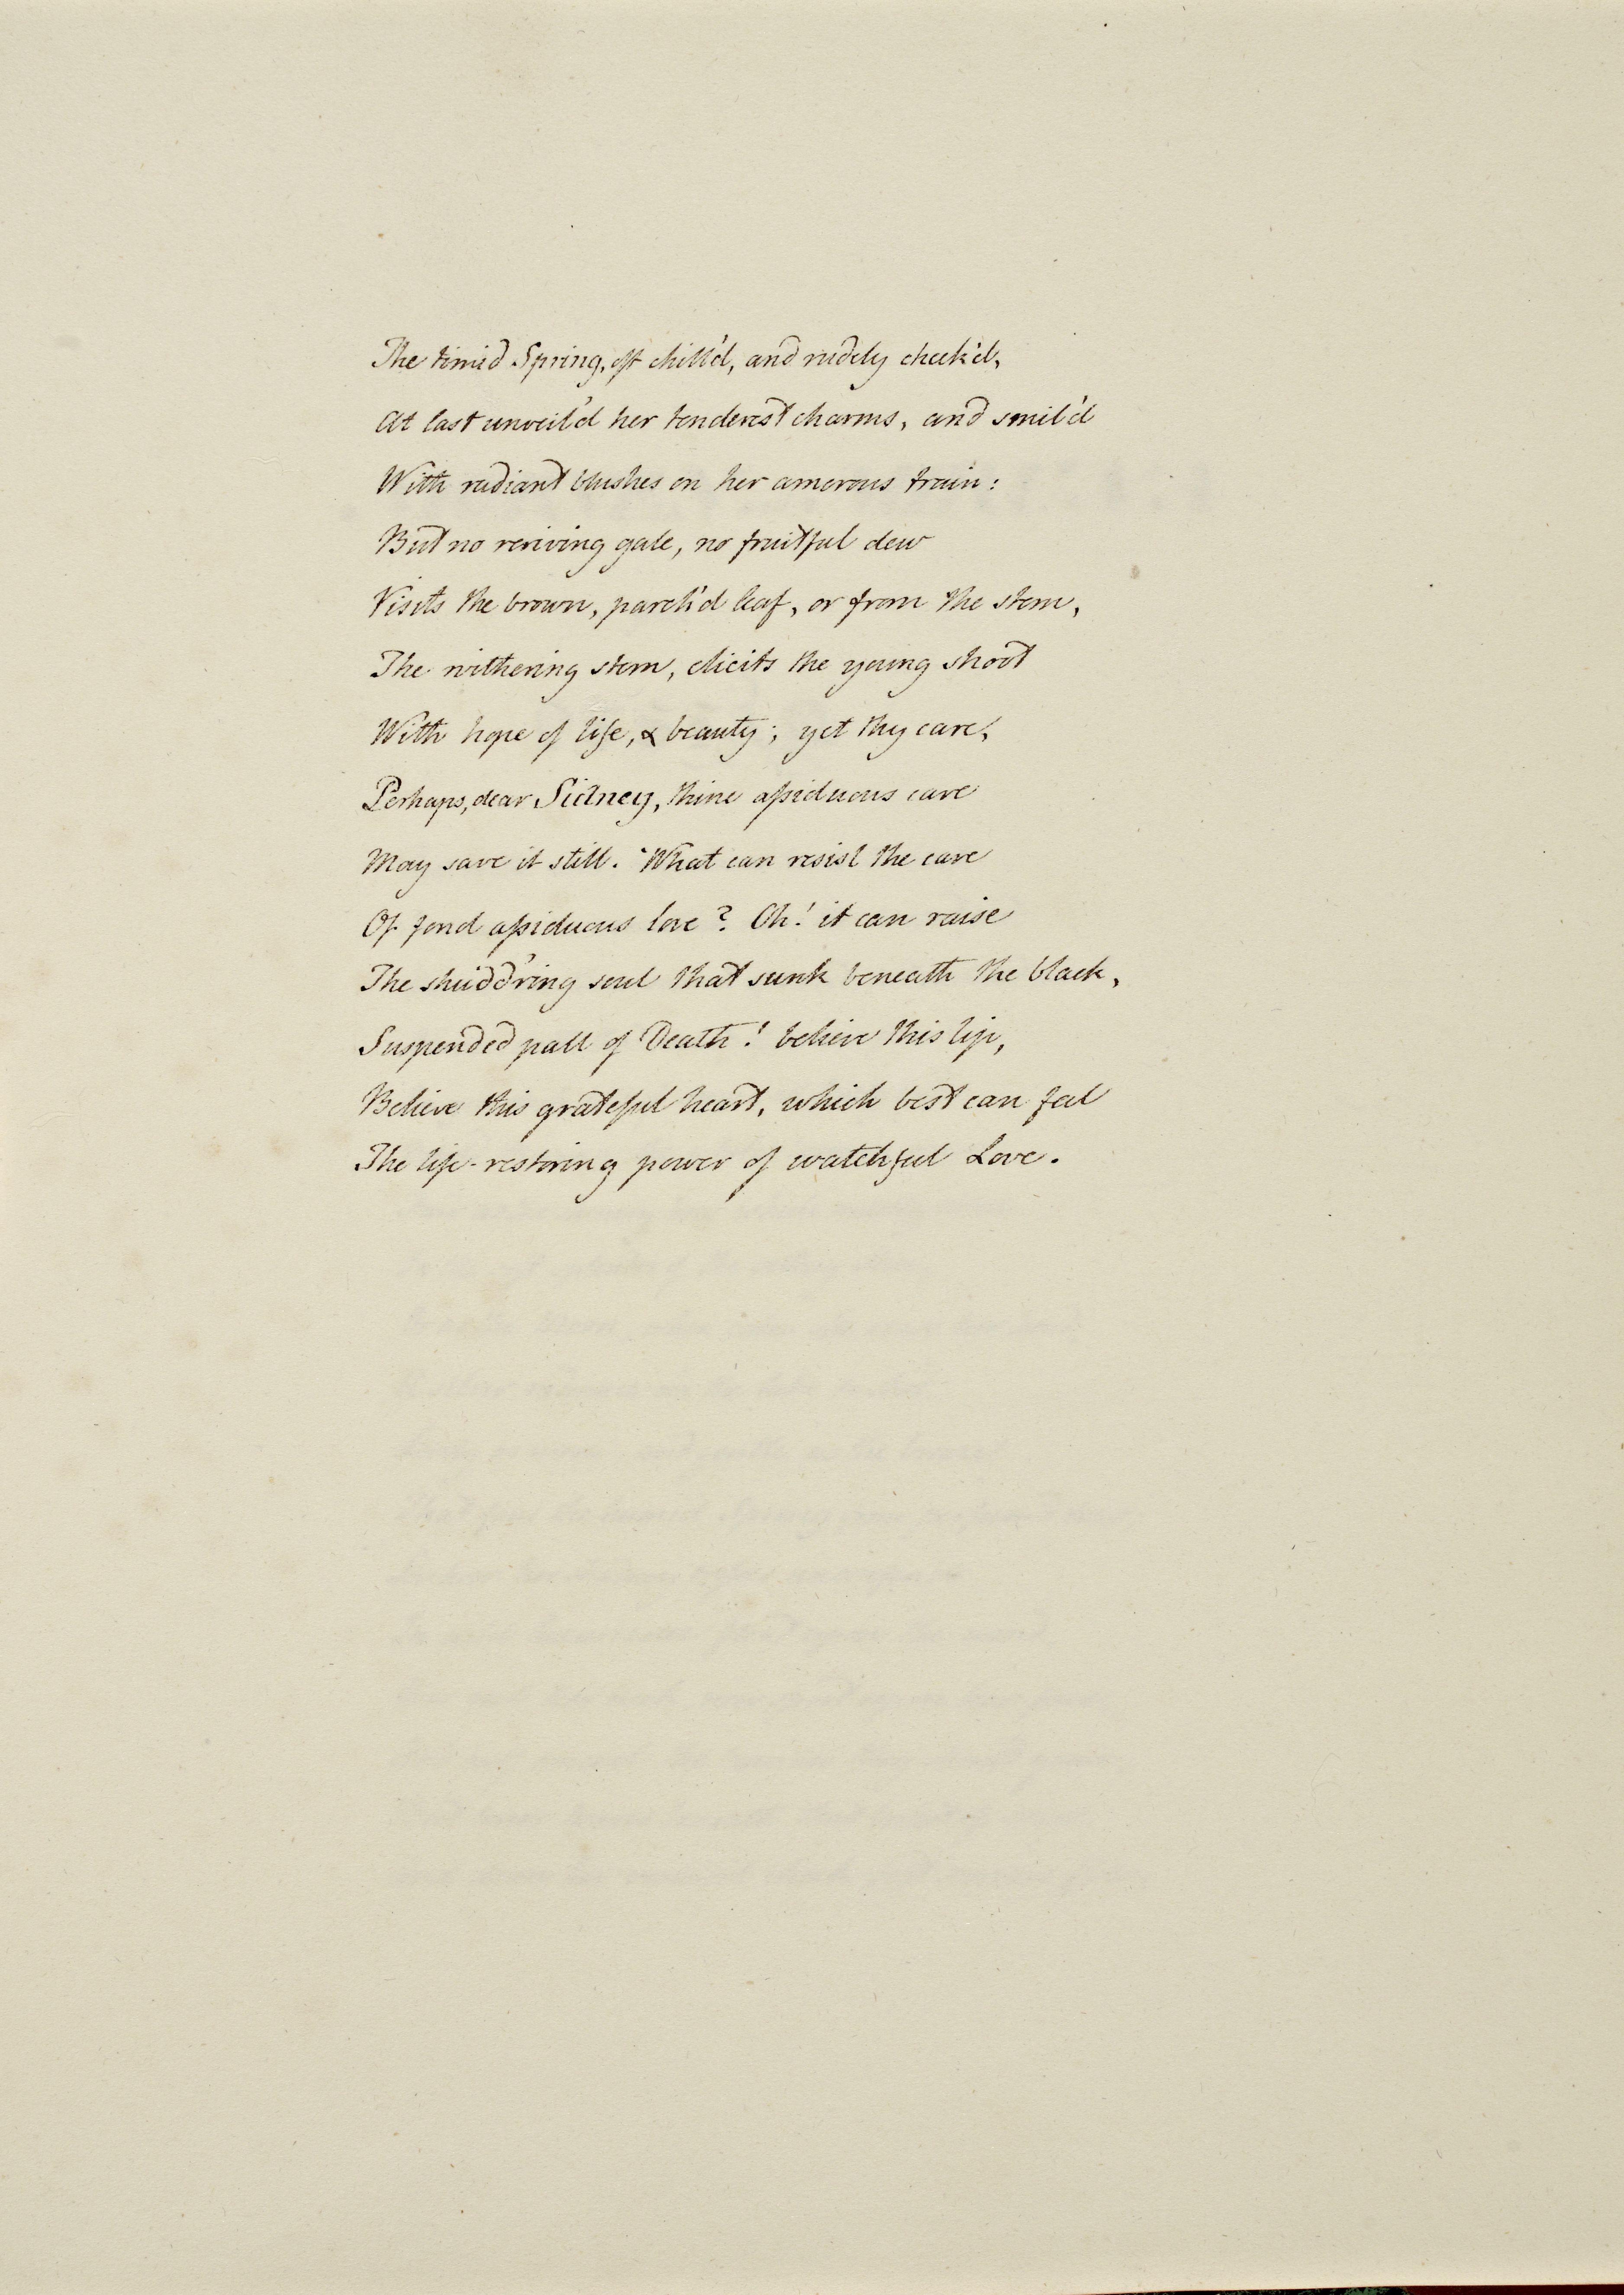 The timid Spring, oft chill'd, and rudely check'd,
At last unveil'd her tenderest charms, and smil'd
With radiant blushes on her amorous train:
But no reviving gale, no fruitful dew
Visits the brown, parch'd leaf, or from the stem,
The withering stem, elicits the young shoot
With hope of life, & beauty; yet thy care,
Perhaps, dear Sidney, thine assiduous care
May save it still. What can resist the care
Of fond assiduous love? Oh! it can raise
The shudd'ring soul that sunk beneath the black,
Suspended pall of Death! believe this lip,
Believe this grateful heart, which best can feel
The life-restoring power of watchful Love.